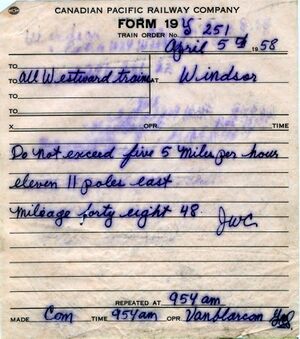 CANADIAN PACIFIC RAILWAY COMPANY
FORM 19 Y
TRAIN ORDER No. S 251
April 5th 1958
TO
TO All Westward trains AT Windsor
TO
TO
X OPR. TIME
Do not exceed five 5 Miles per hour
eleven 11 poles east
Mileage forty eight 48.
JWC
REPEATED AT 954 am
MADE Com TIME 954am OPR. Vanblarcom